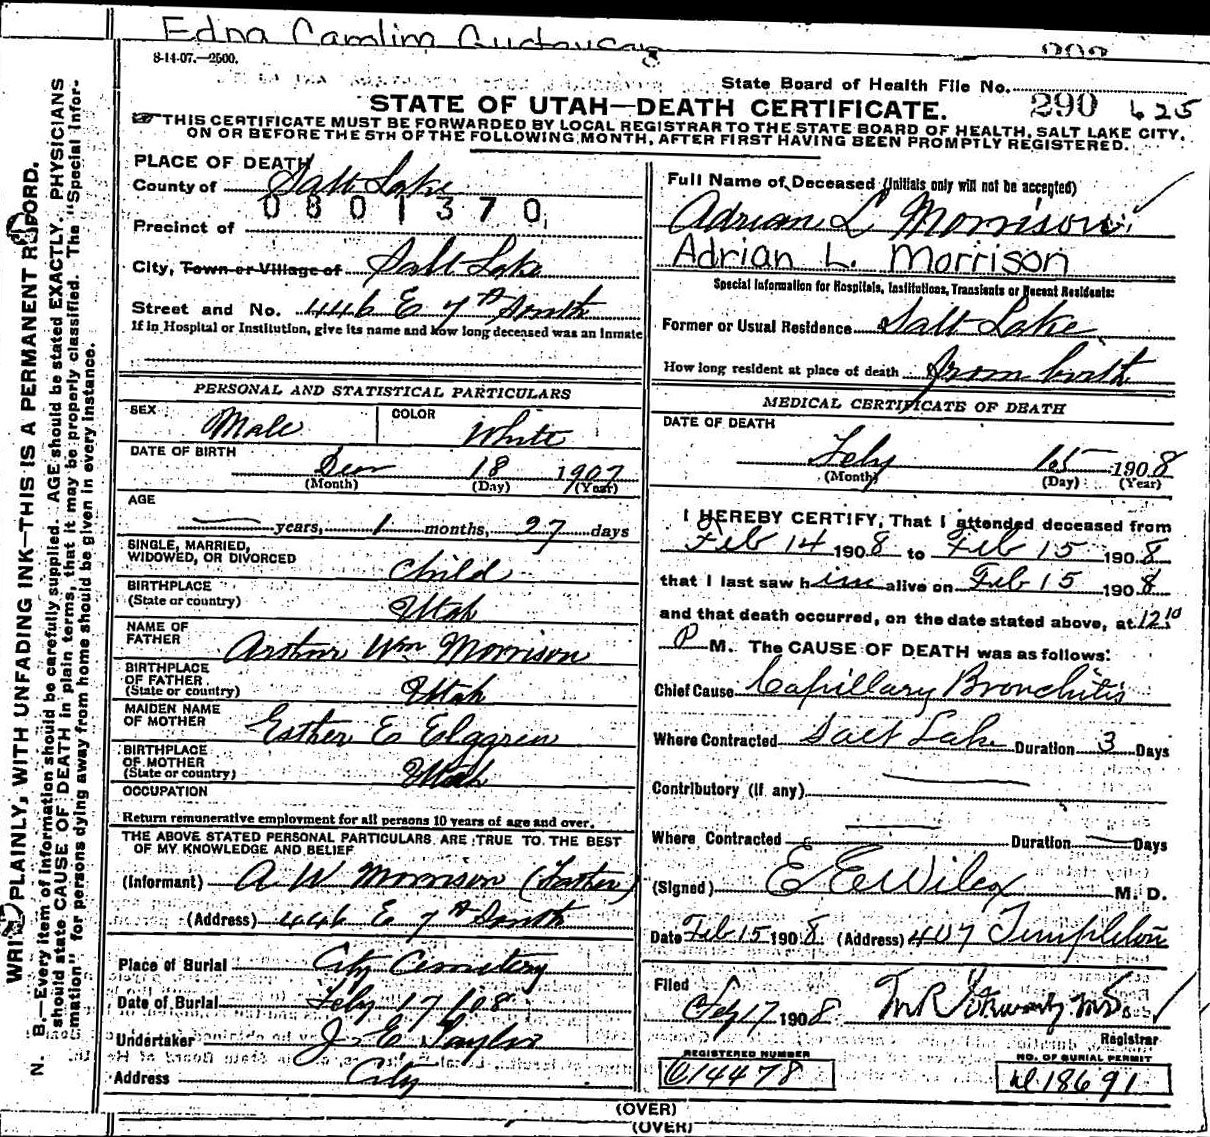 Edna Carolina Gustavson
8-14-07.—2500.
State Board of Health File No.
290 625
STATE OF UTAH—DEATH CERTIFICATE.
THIS CERTIFICATE MUST BE FORWARDED BY LOCAL REGISTRAR TO THE STATE BOARD OF HEALTH, SALT LAKE CITY,
ON OR BEFORE THE 5TH OF THE FOLLOWING MONTH, AFTER FIRST HAVING BEEN PROMPTLY REGISTERED.
WRITE PLAINLY, WITH UNFADING INK—THIS IS A PERMANENT RECORD.
N. B.—Every item of information should be carefully supplied. AGE should be stated EXACTLY. PHYSICIANS
should state CAUSE OF DEATH in plain terms, that it may be properly classified. The "Special Infor-
mation" for persons dying away from home should be given in every instance.
PLACE OF DEATH
County of Salt Lake
0801370
Precinct of
City, Town or Village of Salt Lake
Street and No. 446 E 7th South
If in Hospital or Institution, give its name and how long deceased was an inmate
PERSONAL AND STATISTICAL PARTICULARS
SEX Male COLOR White
DATE OF BIRTH
18 1907
(Month) (Day) (Year)
AGE
— years, 1 months, 27 days
SINGLE, MARRIED,
WIDOWED, OR DIVORCED Child
BIRTHPLACE
(State or country) Utah
NAME OF
FATHER Arthur Wm Morrison
BIRTHPLACE
OF FATHER
(State or country) Utah
MAIDEN NAME
OF MOTHER Esther E Elggren
BIRTHPLACE
OF MOTHER
(State or country) Utah
OCCUPATION
Return remunerative employment for all persons 10 years of age and over.
THE ABOVE STATED PERSONAL PARTICULARS ARE TRUE TO THE BEST
OF MY KNOWLEDGE AND BELIEF
(Informant) A W Morrison (Father)
(Address) 446 E 7th South
Place of Burial City Cemetery
Date of Burial Feby 17 1908
Undertaker J. E. Taylor
Address City
Full Name of Deceased (Initials only will not be accepted)
Adrian L Morrison
Adrian L. Morrison
Special Information for Hospitals, Institutions, Transients or Recent Residents:
Former or Usual Residence Salt Lake
How long resident at place of death from birth
MEDICAL CERTIFICATE OF DEATH
DATE OF DEATH
Feby 15 1908
(Month) (Day) (Year)
I HEREBY CERTIFY, That I attended deceased from
Feb 14 1908 to Feb 15 1908
that I last saw him alive on Feb 15 1908
and that death occurred, on the date stated above, at 12.10
P M. The CAUSE OF DEATH was as follows:
Chief Cause Capillary Bronchitis
Where Contracted Salt Lake Duration 3 Days
Contributory (if any) —
Where Contracted — Duration — Days
(Signed) E E Wilcox M. D.
Date Feb 15 1908 (Address) 407 Templeton
Filed
Feb 17 1908
Registrar
REGISTERED NUMBER
C14478
NO. OF BURIAL PERMIT
18691
(OVER)
(OVER)